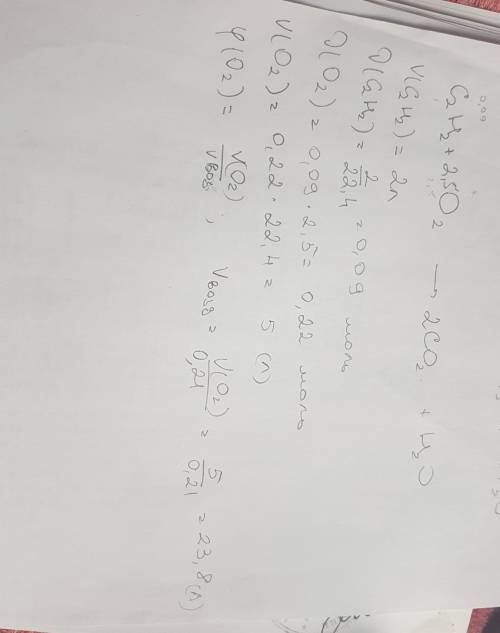 0,09
C2H2 + 2,5O2 → 2CO2 + H2O
V(C2H2) = 2л
ν(C2H2) = 2/22,4 = 0,09 моль
ν(O2) = 0,09 · 2,5 = 0,22 моль
V(O2) = 0,22 · 22,4 = 5 (л)
φ(O2) = V(O2)/Vвозд ; Vвозд = V(O2)/0,21 = 5/0,21 = 23,8(л)